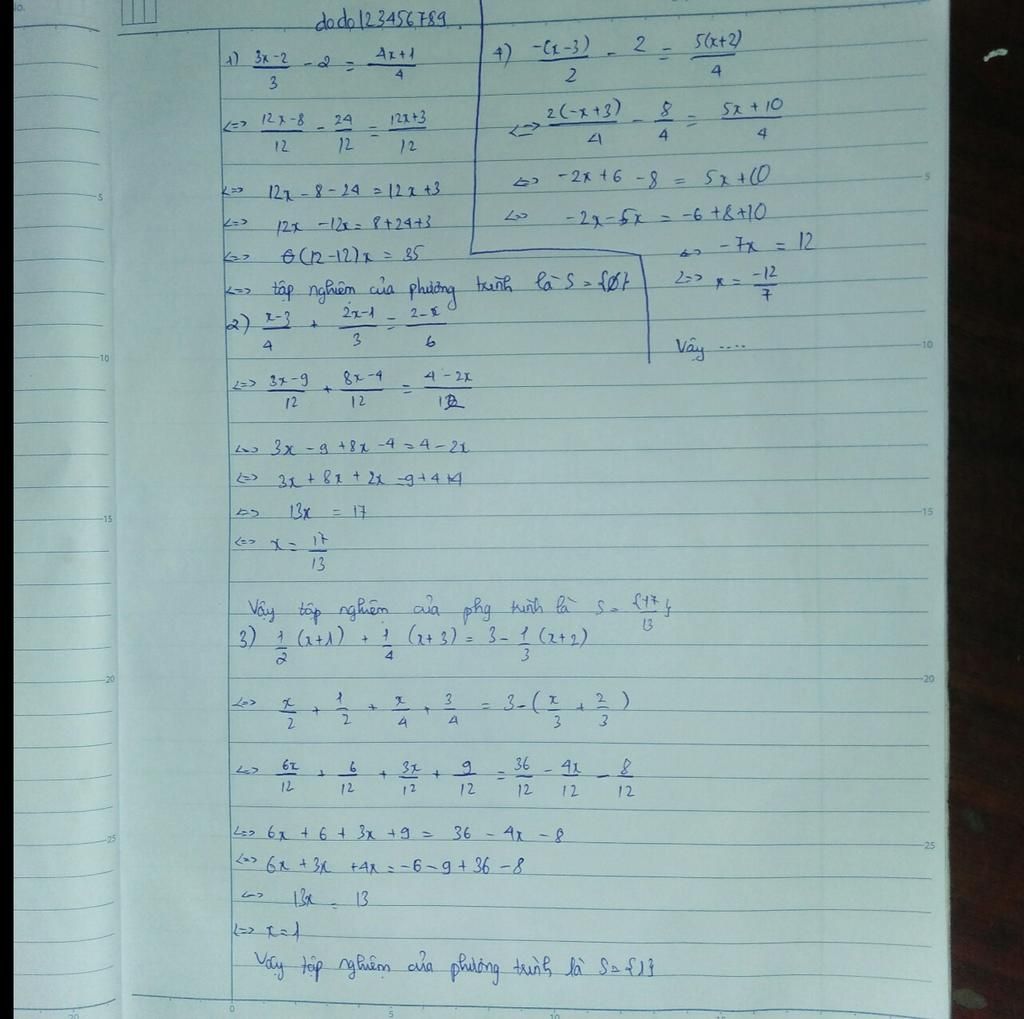 dodo123456789.
1) \frac{3x-2}{3} - 2 = \frac{4x+1}{4}
<=> \frac{12x-8}{12} - \frac{24}{12} = \frac{12x+3}{12}
<=> 12x - 8 - 24 = 12x + 3
<=> 12x - 12x = 8 + 24 + 3
<=> (12-12)x = 35
<=> tập nghiệm của phương trình là S = {Ø}
2) \frac{x-3}{4} + \frac{2x-1}{3} = \frac{2-x}{6}
<=> \frac{3x-9}{12} + \frac{8x-4}{12} = \frac{4-2x}{12}
<=> 3x - 9 + 8x - 4 = 4 - 2x
<=> 3x + 8x + 2x = 9 + 4 + 4
<=> 13x = 17
<=> x = \frac{17}{13}
Vậy tập nghiệm của phg trình là S = {\frac{17}{13}}
3) \frac{1}{2}(x+1) + \frac{1}{4}(x+3) = 3 - \frac{1}{3}(x+2)
<=> \frac{x}{2} + \frac{1}{2} + \frac{x}{4} + \frac{3}{4} = 3 - (\frac{x}{3} + \frac{2}{3})
<=> \frac{6x}{12} + \frac{6}{12} + \frac{3x}{12} + \frac{9}{12} = \frac{36}{12} - \frac{4x}{12} - \frac{8}{12}
<=> 6x + 6 + 3x + 9 = 36 - 4x - 8
<=> 6x + 3x + 4x = -6 - 9 + 36 - 8
<=> 13x = 13
<=> x = 1
Vậy tập nghiệm của phương trình là S = {1}
4) \frac{-(x-3)}{2} - 2 = \frac{5(x+2)}{4}
<=> \frac{2(-x+3)}{4} - \frac{8}{4} = \frac{5x+10}{4}
<=> -2x + 6 - 8 = 5x + 10
<=> -2x - 5x = -6 + 8 + 10
<=> -7x = 12
<=> x = \frac{-12}{7}
Vậy ....